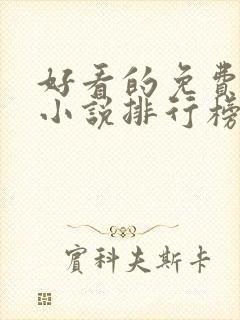 好看的免費
小說排行榜
賓科夫斯卡